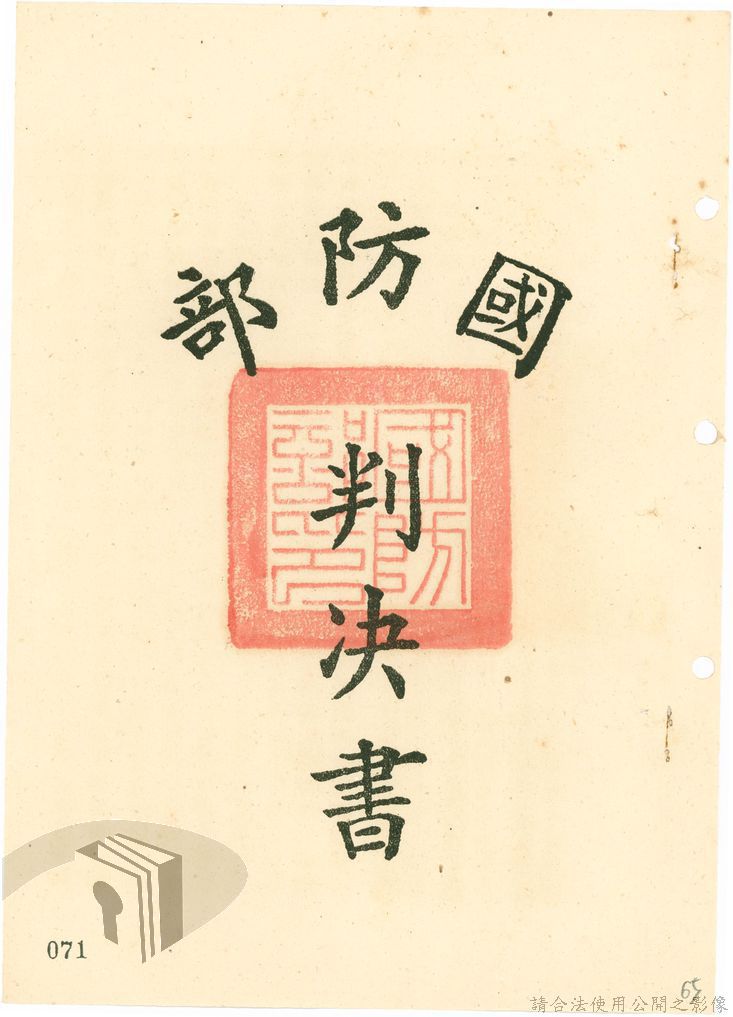 國防部
判決書
國防部印
071
65
請合法使用公開之影像